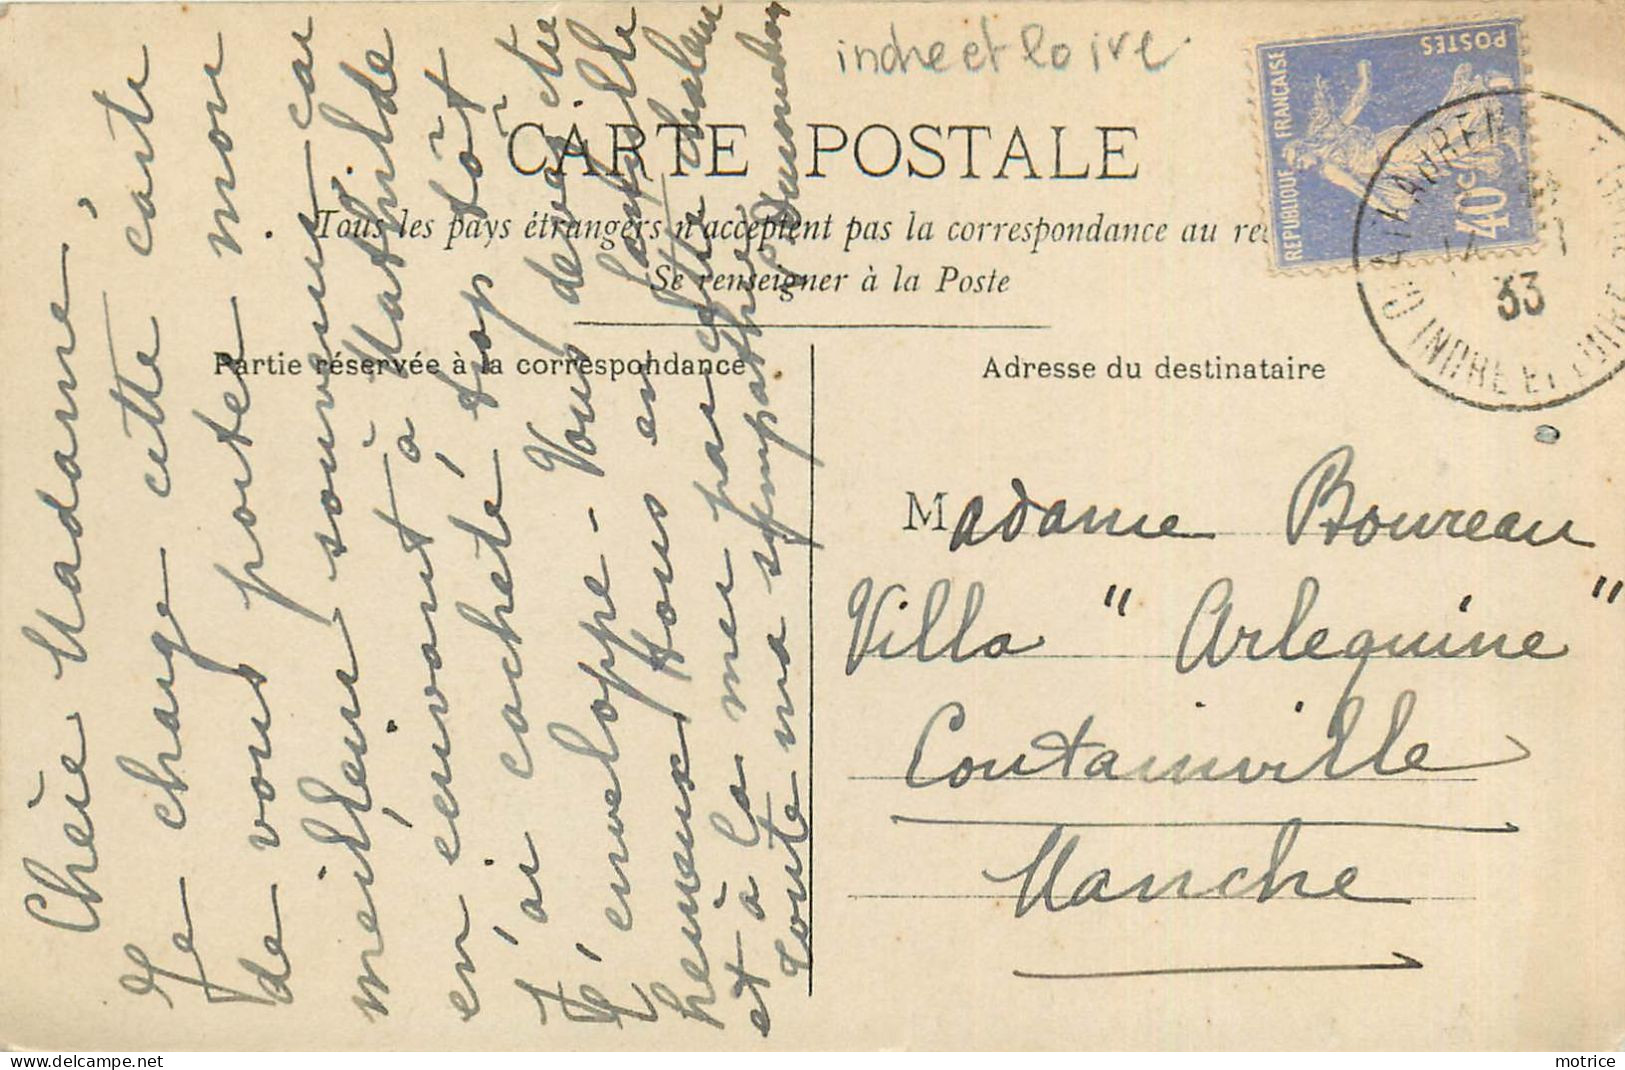 indre et loire
CARTE POSTALE
Tous les pays étrangers n'acceptent pas la correspondance au
Se renseigner à la Poste
Partie réservée à la correspondance
Adresse du destinataire
REPUBLIQUE FRANCAISE
POSTES
40c
INDRE ET LOIRE
33
Chère Madame
Je charge cette carte
de vous porter mon
meilleur souvenir car
en écrivant à Mathilde
j'ai cacheté trop tôt
l'enveloppe - Vous devez être
heureux tous en famille
et à la mer par cette chaleur
toute ma sympathie
Madame Boureau
Villa "Arlequine"
Coutainville
Manche
delcampe.net
motrice